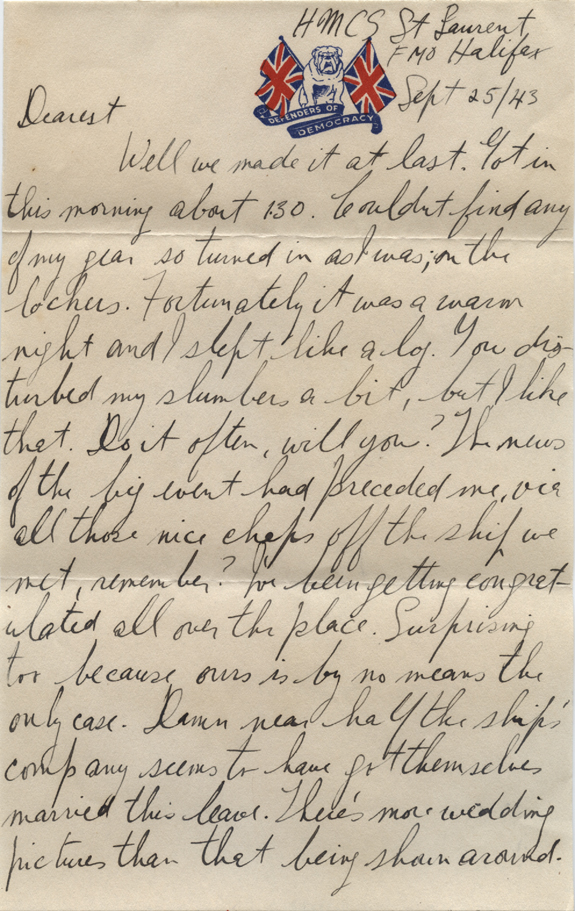 HMCS St Laurent
FMO Halifax
Sept 25/43
DEFENDERS OF
DEMOCRACY
Dearest
Well we made it at last. Got in
this morning about 1:30. Couldn't find any
of my gear so turned in as I was; on the
lockers. Fortunately it was a warm
night and I slept like a log. You dis-
turbed my slumbers a bit, but I like
that. Do it often, will you? The news
of the big event had preceded me, via
all those nice chaps off the ship we
met, remember? I've been getting congrat-
ulated all over the place. Surprising
too because ours is by no means the
only case. Damn near half the ship's
company seems to have got themselves
married this leave. There's more wedding
pictures than that being shown around.